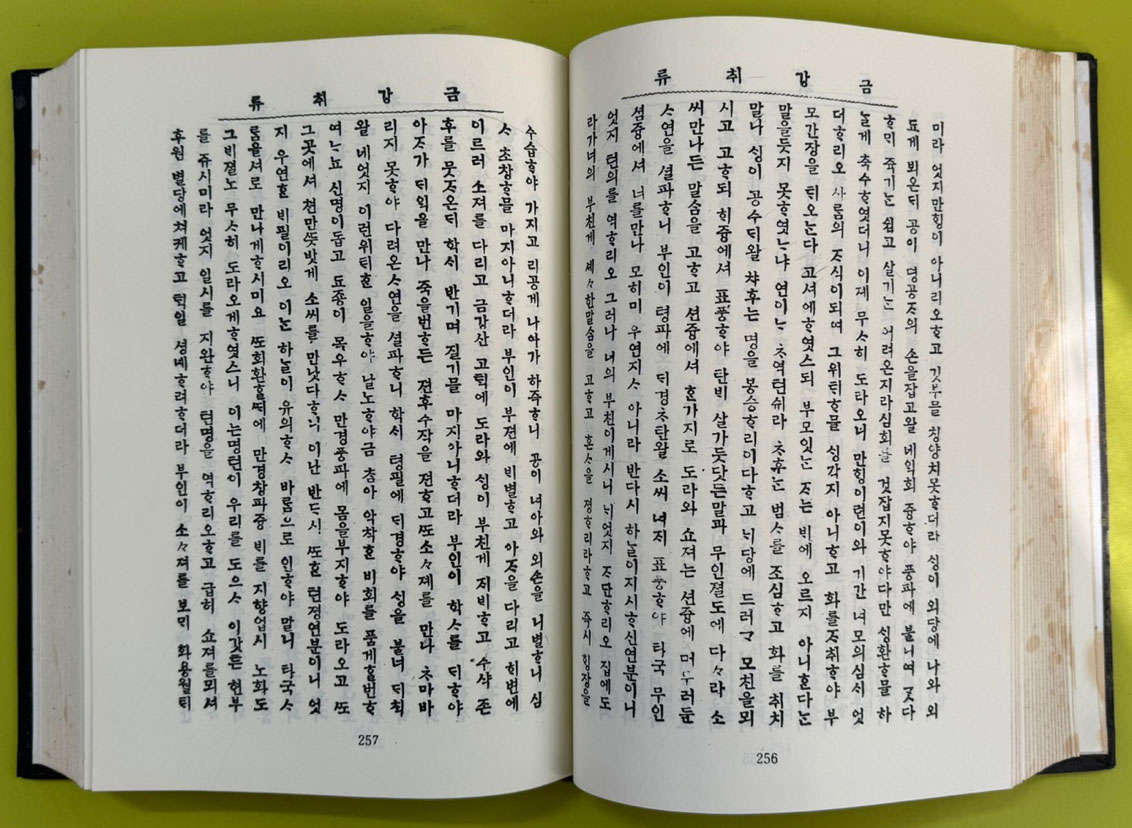 금강취류
미라 엇지만힝이 아니리오ᄒᆞ고 깃부믈 칭양치못ᄒᆞ더라 싱이 외당에 나와 외
됴게 뵈온ᄃᆡ 공이 명공ᄌᆞ의 손을잡고왈 네익회 즁ᄒᆞ야 풍파에 불니여 ᄀᆞᆺ다
ᄒᆞᄆᆡ 쥭기ᄂᆞᆫ 쉽고 살기ᄂᆞᆫ 어려온지라심회를 것잡지못ᄒᆞ야다만 싱환ᄒᆞ믈 하
ᄂᆞᆯ게 축수ᄒᆞ엿더니 이제 무ᄉᆞ히 도라오니 만힝이련이와 기간 너모의심ᄉᆡ 엇
더ᄒᆞ리오 사ᄅᆞᆷ의 ᄌᆞ식이되여 그위ᄐᆡᄒᆞ믈 싱각지 아니ᄒᆞ고 화를ᄌᆞ취ᄒᆞ야 부
모간장을 ᄐᆡ오ᄂᆞᆫ다 고셔에ᄒᆞ엿스되 부모잇ᄂᆞᆫ ᄌᆞ는 ᄇᆡ에 오르지 아니ᄒᆞᆫ다는
말을듯지 못ᄒᆞ엿ᄂᆞ냐 연이ᄂᆞᆫ ᄎᆞ역련쉬라 ᄎᆞ후ᄂᆞᆫ 범ᄉᆞ를 조심ᄒᆞ고 화를 취치
말나 싱이 공수ᄃᆡ왈 ᄎᆞ후는 명을 봉승ᄒᆞ리이다ᄒᆞ고 ᄂᆡ당에 드러ᄀᆞ 모친을뫼
시고 고ᄒᆞ되 ᄒᆡ즁에셔 표풍ᄒᆞ야 탄ᄇᆡ 살가듯닷든말과 무인졀도에 다ᄃᆞ라 소
씨만나든 말슴을 고ᄒᆞ고 션즁에셔 ᄒᆞᆫ가지로 도라와 쇼져는 션즁에 머무러둔
ᄉᆞ연을 셜파ᄒᆞ니 부인이 령파에 ᄃᆡ경ᄎᆞ탄왈 소씨 녀ᄌᆡ 표풍ᄒᆞ야 타국 무인
셤즁에셔 너를만나 모히미 우연지ᄉᆞ 아니라 반다시 하ᄂᆞᆯ이지시ᄒᆞ신연분이니
엇지 텬의를 역ᄒᆞ리오 그러나 너의 부친이게시니 ᄂᆡ엇지 ᄌᆞ단ᄒᆞ리오 집에도
라가너의 부친게 세ᄉᆞ한말슴을 고ᄒᆞ고 혼ᄉᆞ을 졍ᄒᆞ리라ᄒᆞ고 즉시 ᄒᆡᆼ장을
256
금강취류
수습ᄒᆞ야 가지고 리공게 나아가 하즉ᄒᆞ니 공이 녀아와 외손을 니별ᄒᆞ니 심
ᄉᆞ 초창ᄒᆞ믈 마지아니ᄒᆞ더라 부인이 부젼에 ᄇᆡ별ᄒᆞ고 아ᄌᆞ을 다리고 ᄒᆡ변에
이르러 소져를 다리고 금강산 고ᄐᆡᆨ에 도라와 싱이 부친게 ᄌᆡᄇᆡᄒᆞ고 수샤 존
후를 뭇ᄌᆞ온ᄃᆡ 학ᄉᆡ 반기며 질기믈 마지아니ᄒᆞ더라 부인이 학ᄉᆞ를 ᄃᆡᄒᆞ야
아ᄌᆞ가 ᄃᆡ익을 만나 죽을번ᄒᆞ든 젼후수작을 젼ᄒᆞ고ᄯᅩ소ᄉᆞ졔를 만나 ᄎᆞ마바
리지 못ᄒᆞ야 다려온ᄉᆞ연을 셜파ᄒᆞ니 학ᄉᆡ 령필에 ᄃᆡ경ᄒᆞ야 싱을 불너 ᄃᆡᄎᆡᆨ
왈 네엇지 이런위ᄐᆡᄒᆞᆫ 일을ᄒᆞ야 날노ᄒᆞ야금 참아 악착ᄒᆞᆫ 비회를 품게ᄒᆞᆯ번ᄒᆞ
여ᄂᆞ뇨 신명이돕고 됴종이 목우ᄒᆞᄉᆞ 만경풍파에 몸을부지ᄒᆞ야 도라오고 ᄯᅩ
그곳에셔 쳔만ᄯᅳᆺ밧게 소씨를 만낫다ᄒᆞ니 이난 반드시 ᄯᅩᄒᆞᆫ 텬졍연분이니 엇
지 우연ᄒᆞᆫ ᄇᆡ필이리오 이ᄂᆞᆫ 하ᄂᆞᆯ이 유의ᄒᆞᄉᆞ 바ᄅᆞᆷ으로 인ᄒᆞ야 말ᄂᆡ 타국ᄉᆞ
ᄅᆞᆷ을셔로 만나게ᄒᆞ시미요 ᄯᅩ회환ᄒᆞᆯᄯᆡ에 만경창파즁 ᄇᆡ를 지향업시 노화도
그ᄇᆡ졀노 무ᄉᆞ히 도라오게ᄒᆞ엿스니 이는명텬이 우리를 도으ᄉᆞ 이갓튼 현부
를 쥬시미라 엇지 일시를 지완ᄒᆞ야 텬명을 역ᄒᆞ리오ᄒᆞ고 급히 쇼져를뫼셔
후원 별당에쳐케ᄒᆞ고 ᄐᆡᆨ일 셩녜ᄒᆞ려ᄒᆞ더라 부인이 소ᄉᆞ져를 보ᄆᆡ 화용월ᄐᆡ
257